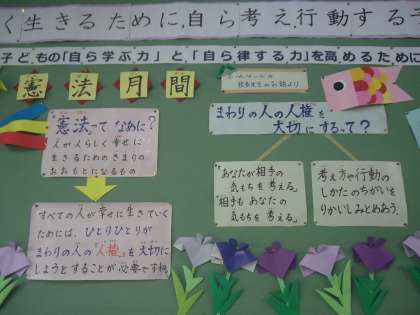 く生きるために,自ら考え行動する子
子どもの「自ら学ぶ力」と「自ら律する力」を高めるために
憲法月間
校長先生のお話より
「憲法」ってなあに？
人が人らしく幸せに
生きるためのきまりの
おおもとになるもの
すべての人が幸せに生きていく
ためには、ひとりひとりが
まわりの人の「人権」を大切に
しようとすることが必要ですね
まわりの人の人権を
大切にするって？
「あなたが相手の
気もちを考える。
相手もあなたの
気もちを考える。」
考え方や行動の
しかたのちがいを
りかいしみとめあう。